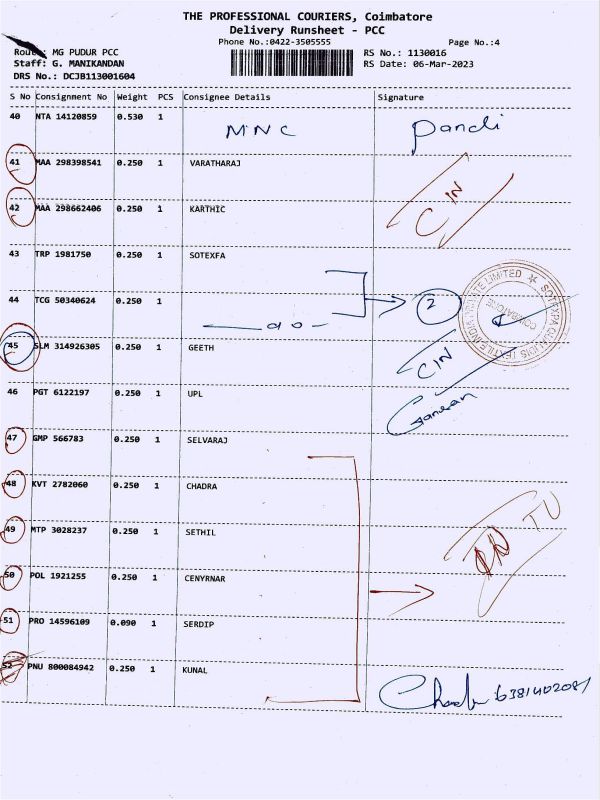 THE PROFESSIONAL COURIERS, Coimbatore
Delivery Runsheet - PCC
Phone No.:0422-3505555 Page No.:4
Route: MG PUDUR PCC RS No.: 1130016
Staff: G. MANIKANDAN RS Date: 06-Mar-2023
DRS No.: DCJB113001604
S No Consignment No Weight PCS Consignee Details Signature
40 NTA 14120859 0.530 1 MNC Pandi
41 MAA 298398541 0.250 1 VARATHARAJ
CIN
42 MAA 298662406 0.250 1 KARTHIC
43 TRP 1981750 0.250 1 SOTEXFA
44 TCG 50340624 0.250 1 2
45 SLM 314926305 0.250 1 GEETH CIN
46 PGT 6122197 0.250 1 UPL Ganesan
47 GMP 566783 0.250 1 SELVARAJ
48 KVT 2782060 0.250 1 CHADRA
49 MTP 3028237 0.250 1 SETHIL TU
50 POL 1921255 0.250 1 CENYRNAR
51 PRO 14596109 0.090 1 SERDIP
52 PNU 800084942 0.250 1 KUNAL
6381402087